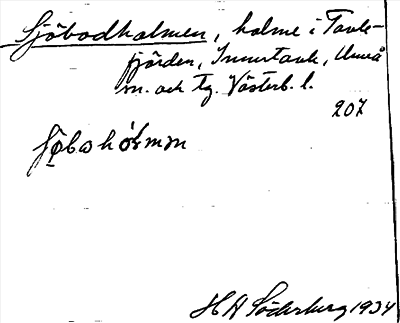 Sjöbodholmen, holme i Tavle-
fjärden, Innertavle, Umeå
sn. och tg. Västerb. l.
207
H A Söderberg 1934